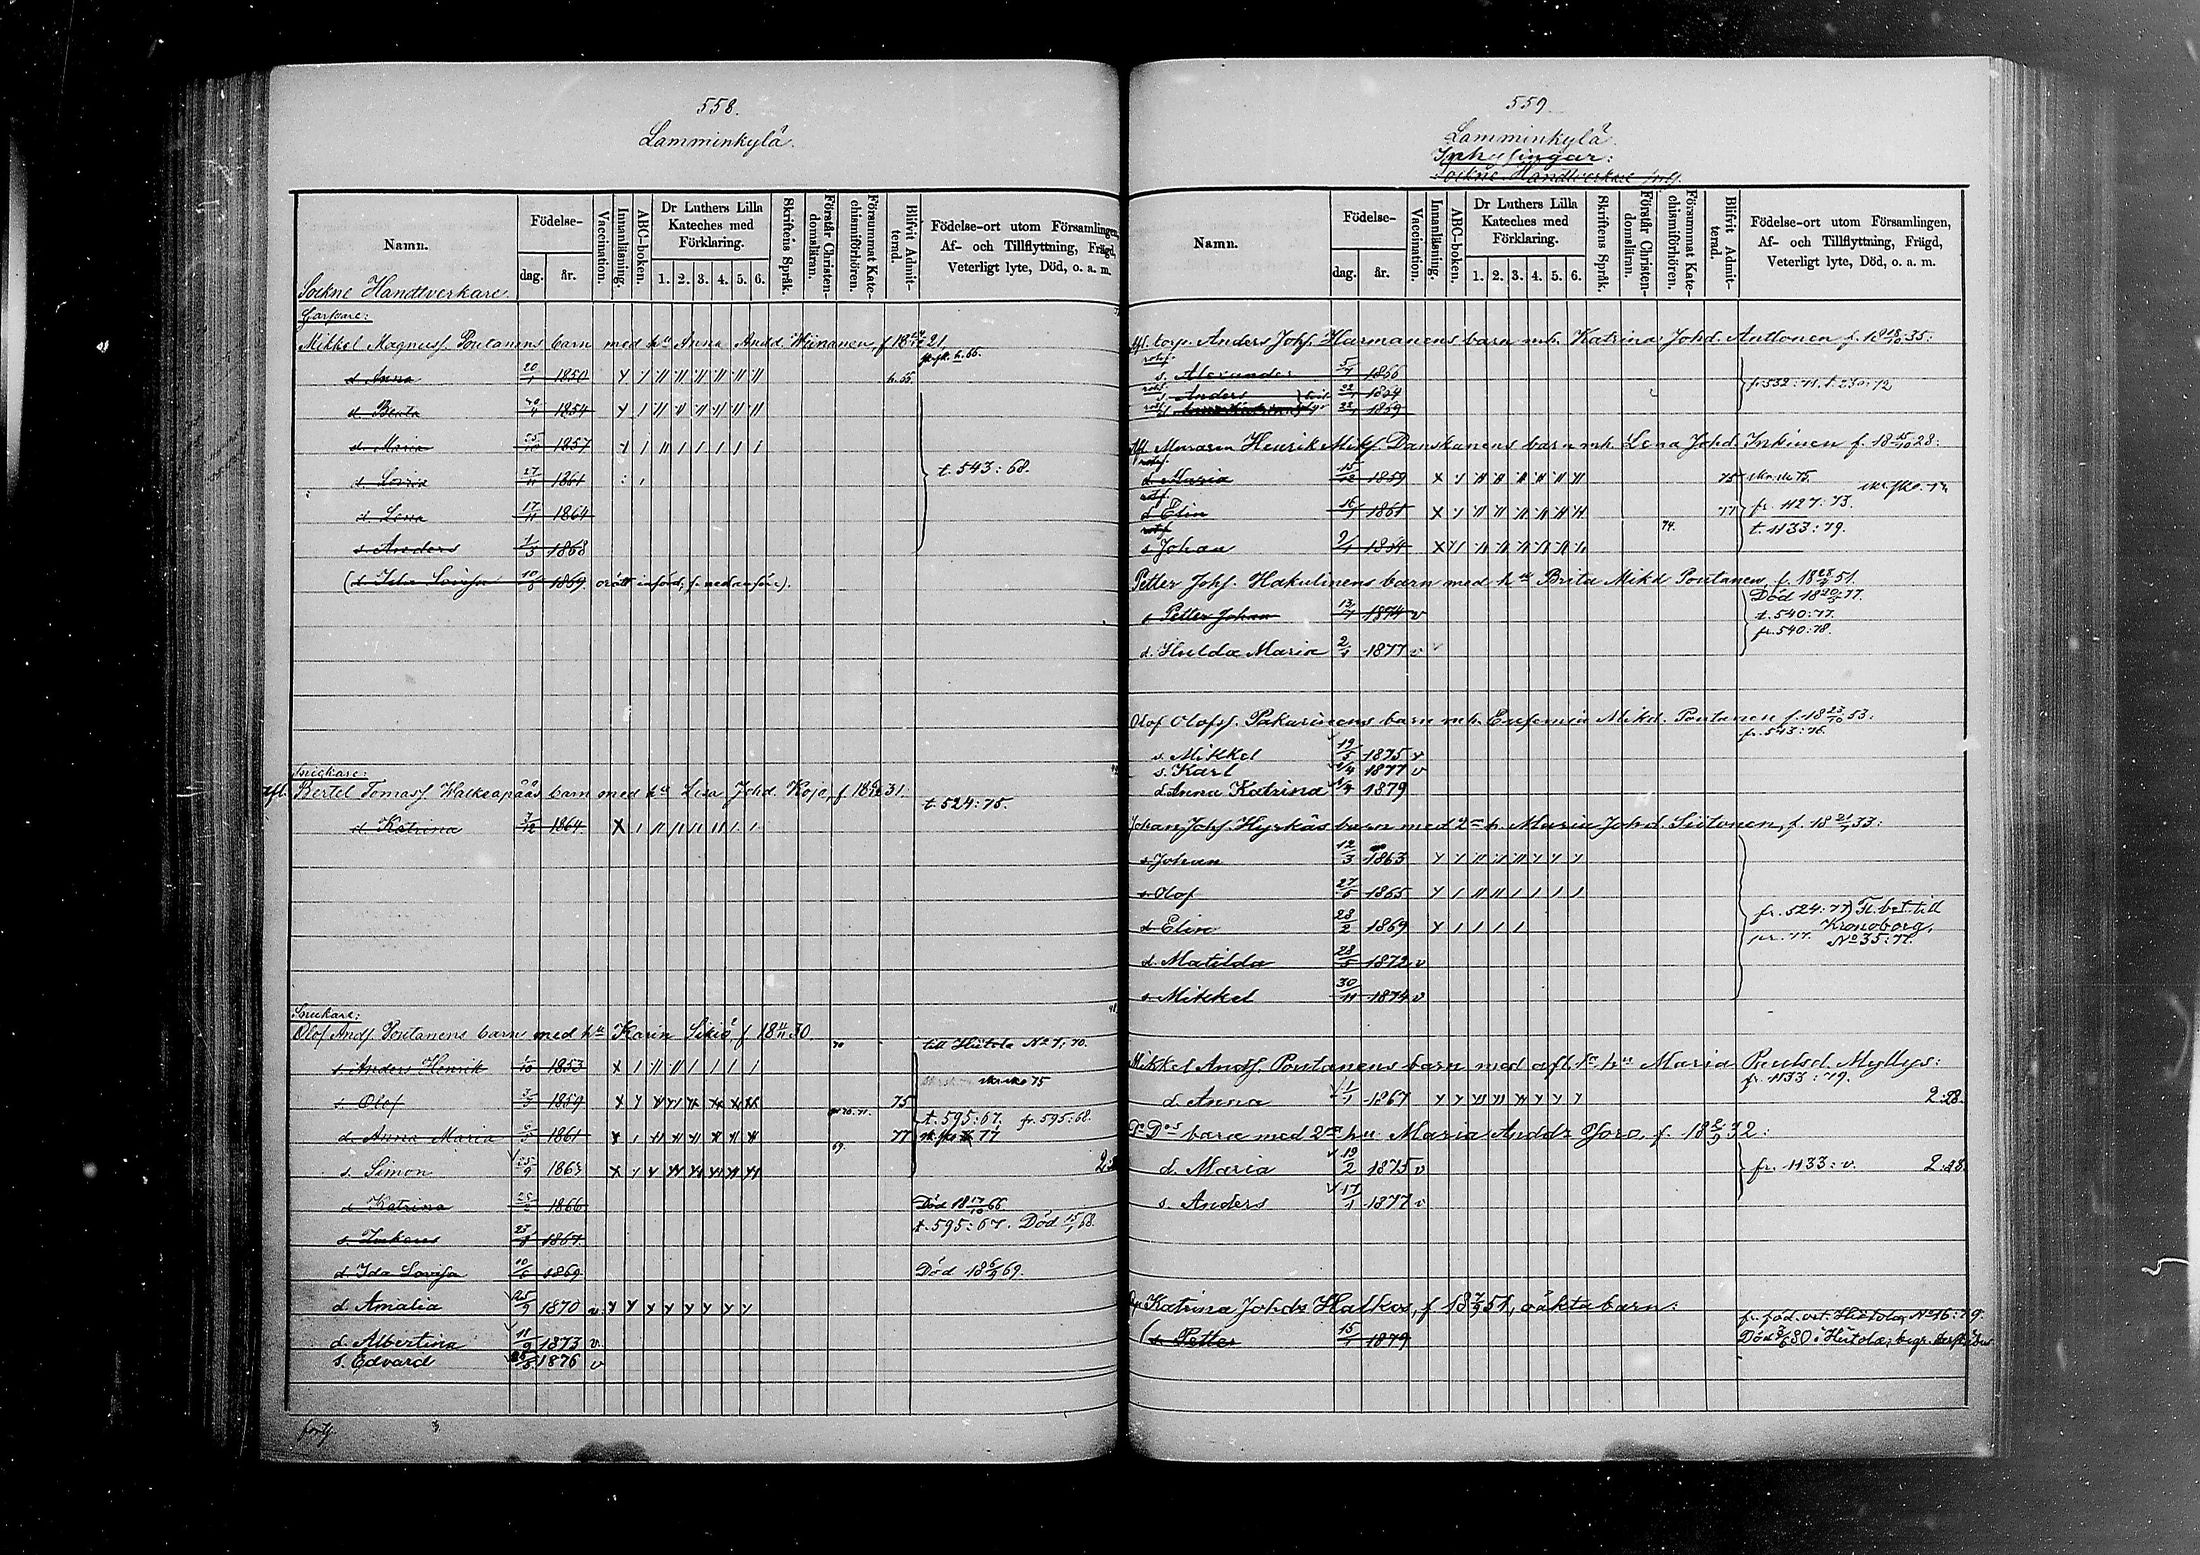 558.
Lamminkylä.
Namn.
Födelse-
dag.
år.
Vaccination.
Innanläsning.
ABC-boken.
Dr Luthers Lilla Kateches med Förklaring.
1. 2. 3. 4. 5. 6.
Skriftens Språk.
Förstår Christendomsläran.
Försummat Katechismiförhören.
Blifvit Admitterad.
Födelse-ort utom Församlingen,
Af- och Tillflyttning, Frägd,
Veterligt lyte, Död, o. a. m.
Sockne Handtverkare.
Garfvare:
Mikkel Magnuss. Poutanens barn med hu Anna Andd. 21.
d. Anna 20/1 1850
d. Beata 1854
d. Maria 25/10 1857
d. Lovisa 27/11 1861 t. 543: 68.
d. Lena 17/11 1864
s. Anders 1/3 1868
(d. Ida Lovisa 10/6 1869. orätt införd, f. nedanföre).
Snickare:
afl. Bertel Tomass. Walkeapääs barn med hu Lisa Johd. Kojo, 31.
t. 524: 75.
d. Katrina 7/12 1864
Smickare:
Olof Ands. Poutanens barn med hu Karin Sikiö, f 30
till Hiitola No 7, 70.
s. Anders Henrik 1/10 1853
s. Olof 1859 75
t. 595: 67. fr. 595: 68.
d. Anna Maria 1861 77
s. Simon 25/9 1863
d. Katrina 1866 Död 18 17/10 66
t. 595: 67. Död 15/1 68.
1867
d. Ida Lovisa 10/6 1869 Död 18 6/9 69.
d. Amalia 25/9 1870 v
d. Albertina 11/9 1873 v
s. Edvard 1876 v
559
Lamminkylä.
Inhysingar:
Sockne Handtverkare
Namn.
Födelse-
dag.
år.
Vaccination.
Innanläsning.
ABC-boken.
Dr Luthers Lilla Kateches med Förklaring.
1. 2. 3. 4. 5. 6.
Skriftens Språk.
Förstår Christendomsläran.
Försummat Katechismiförhören.
Blifvit Admitterad.
Födelse-ort utom Församlingen,
Af- och Tillflyttning, Frägd,
Veterligt lyte, Död, o. a. m.
Afl. torp. Anders Johs. Harmanens barn mh. Katrina Johd. Anttonen f. 18 18/10 35:
s. Alexander 5/7 1866
s. Anders 22/1 1859
22/1 1859
Afl. Muraren Henrik Miks. Danskanens barn mh. Lena Johd. Inkinen f. 18 15/10 28:
d. Maria 15/12 1859 75
d. Elin 16/1 1861 77 fr. 1127: 73.
s. Johan 9/1 1854 t. 1133: 79.
Petter Johs. Hakulinens barn med hu Brita Mikd Poutanen, f. 51.
s. Petter Johan 13/7 1874 v Död 18 20/3 77.
t. 540: 77.
fr. 540: 78.
d. Hulda Maria 2/1 1877 v
Olof Olofs. Pakarinens barn mh. Eufemia Mikd. Poutanen f. 18 23/10 53:
fr. 543: 76.
s. Mikkel 19/5 1875 v
s. Karl 1877 v
d. Anna Katrina 1879
Johan Johs. Hyrkäs barn med 2a h. Maria Johd. Siitonen, f. 18 21/1 33:
s. Johan 12/3 1863
s. Olof 27/6 1865
d. Elin 28/2 1869
fr. 524: 77) Fl. bet. till
Kronoborg,
No 35: 77.
d. Matilda 28/5 1872 v
s. Mikkel 30/11 1874 v
Mikkel Ands. Poutanens barn med afl. 1a hu Maria Paulsd. Myllys:
fr. 1133: 79.
d. Anna 1/1 1867 2:28.
Ds Dos barn med 2a hu Maria Andds Joro, f. 18 2/9 32:
d. Maria 19/2 1875 v fr. 1133: v. 2:28.
s. Anders 17/1 1877 v
Katrina Johds Halkos, f 18 7/9 51, oäkta barn:
fr. föd. ort. Hiitola, No 16: 79.
(s. Petter 15/1 1879
Död 3/6 80 i Hiitola, begr.